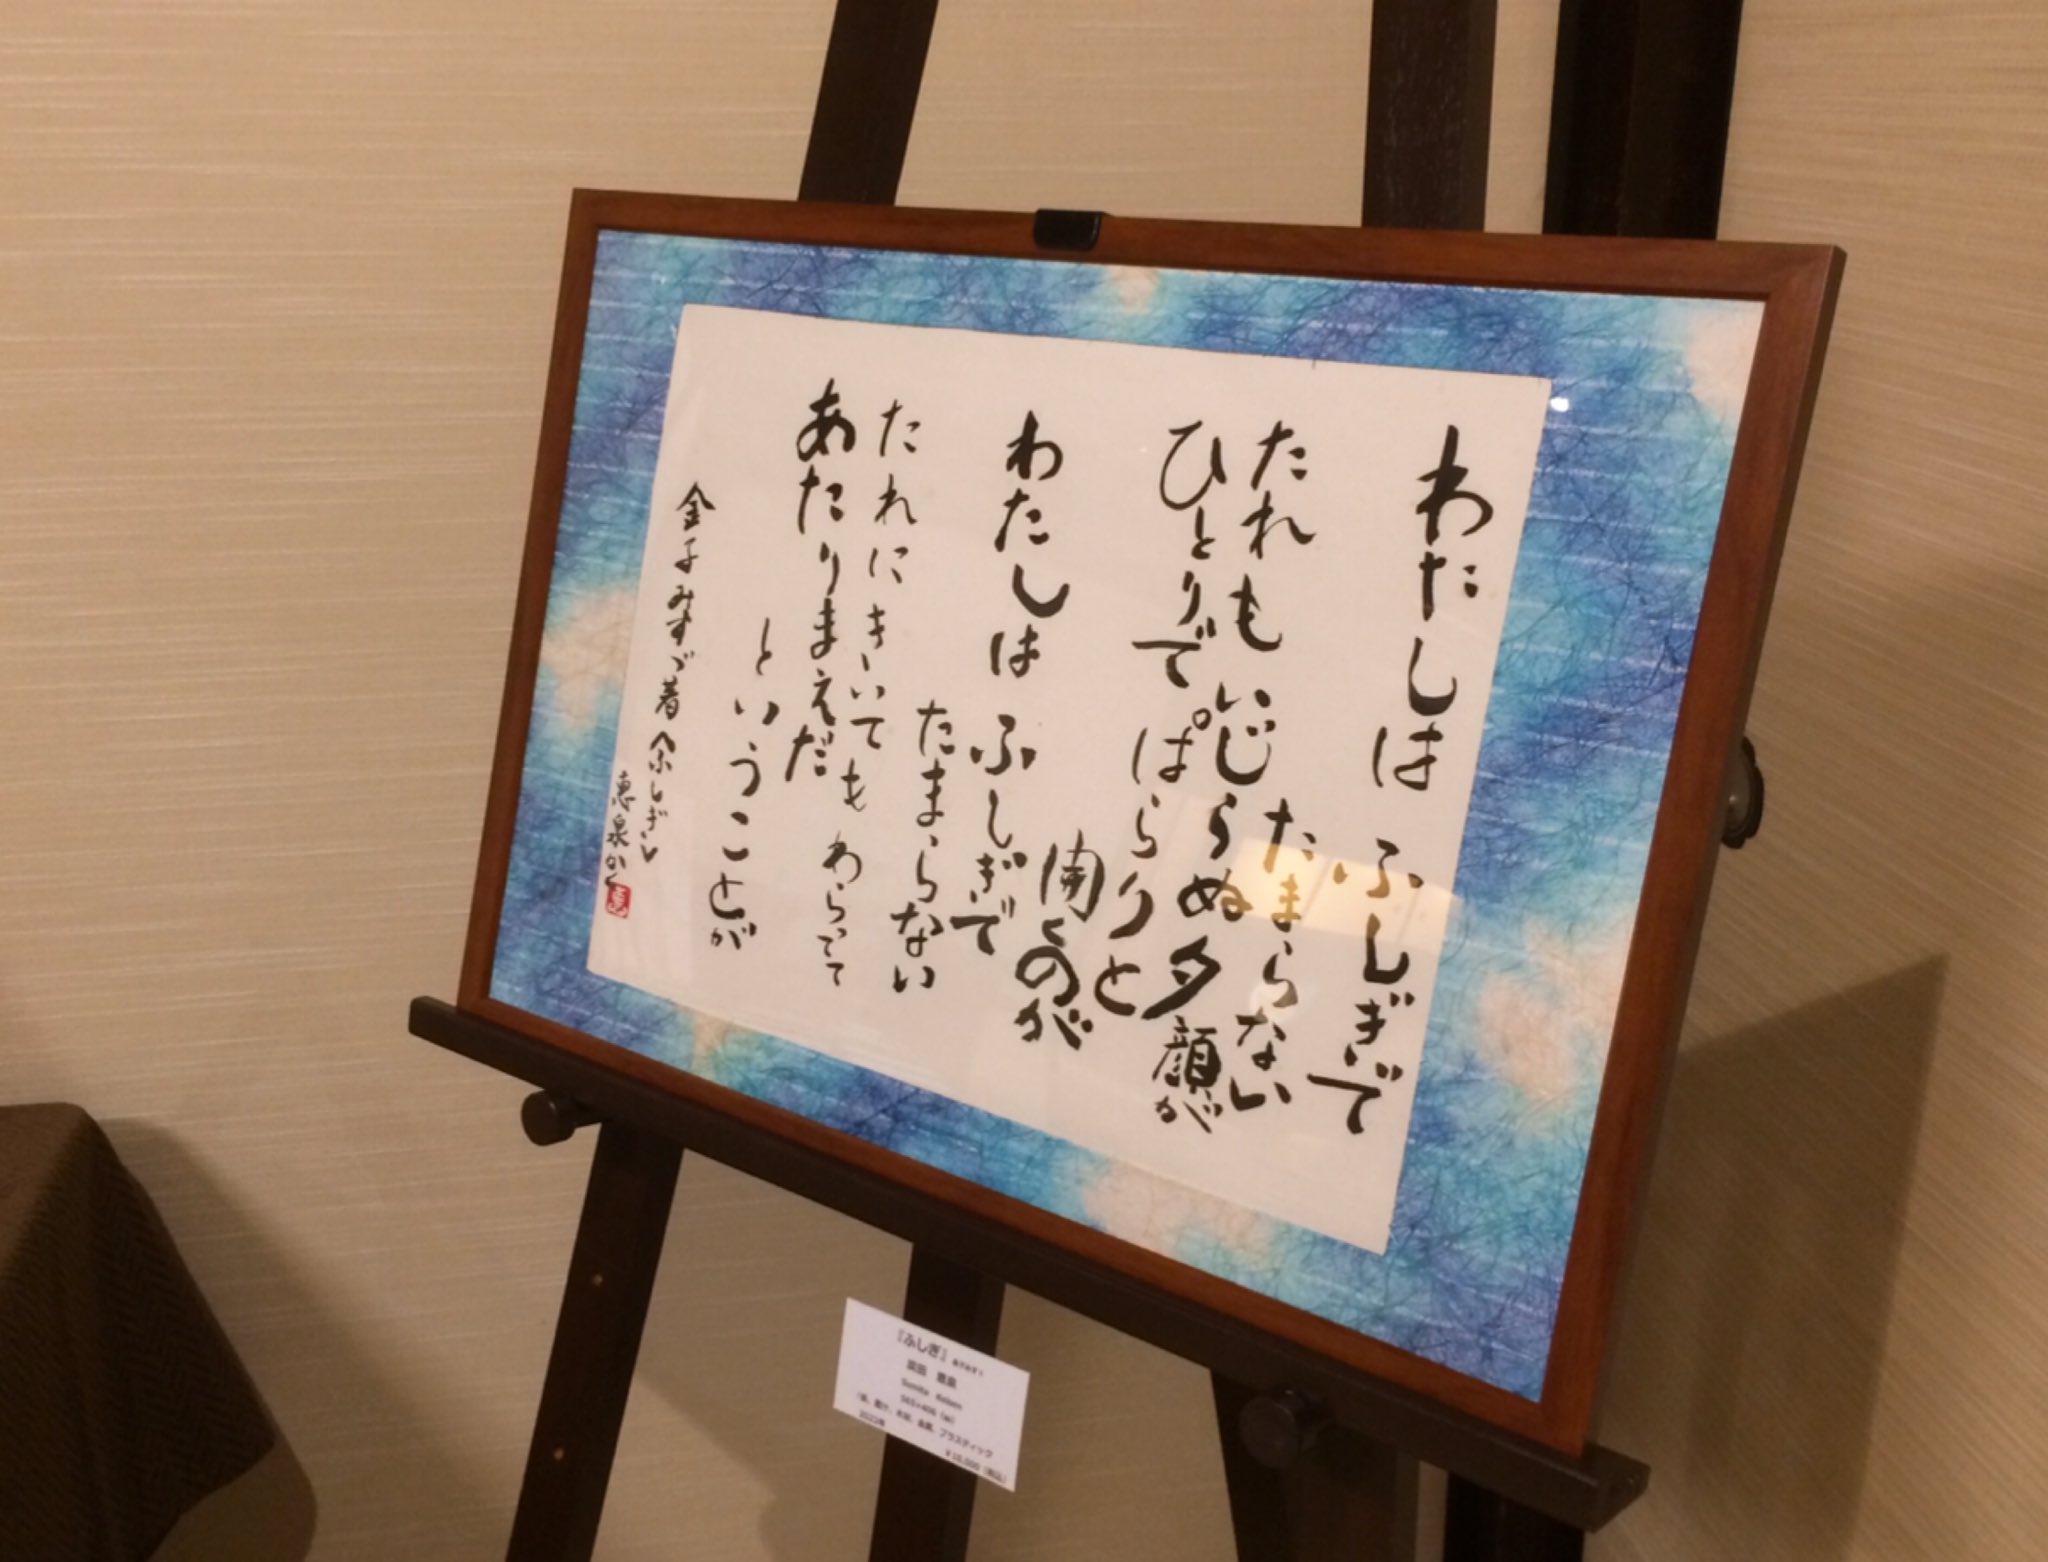 わたしは ふしぎで
たまらない
たれもいじらぬ夕顔が
ひとりでぱらりと
開くのが
わたしは ふしぎで
たまらない
たれにきいてもわらってて
あたりまえだ
ということが
金子みすゞ著〈ふしぎ〉
恵泉かく
『ふしぎ』
2022年